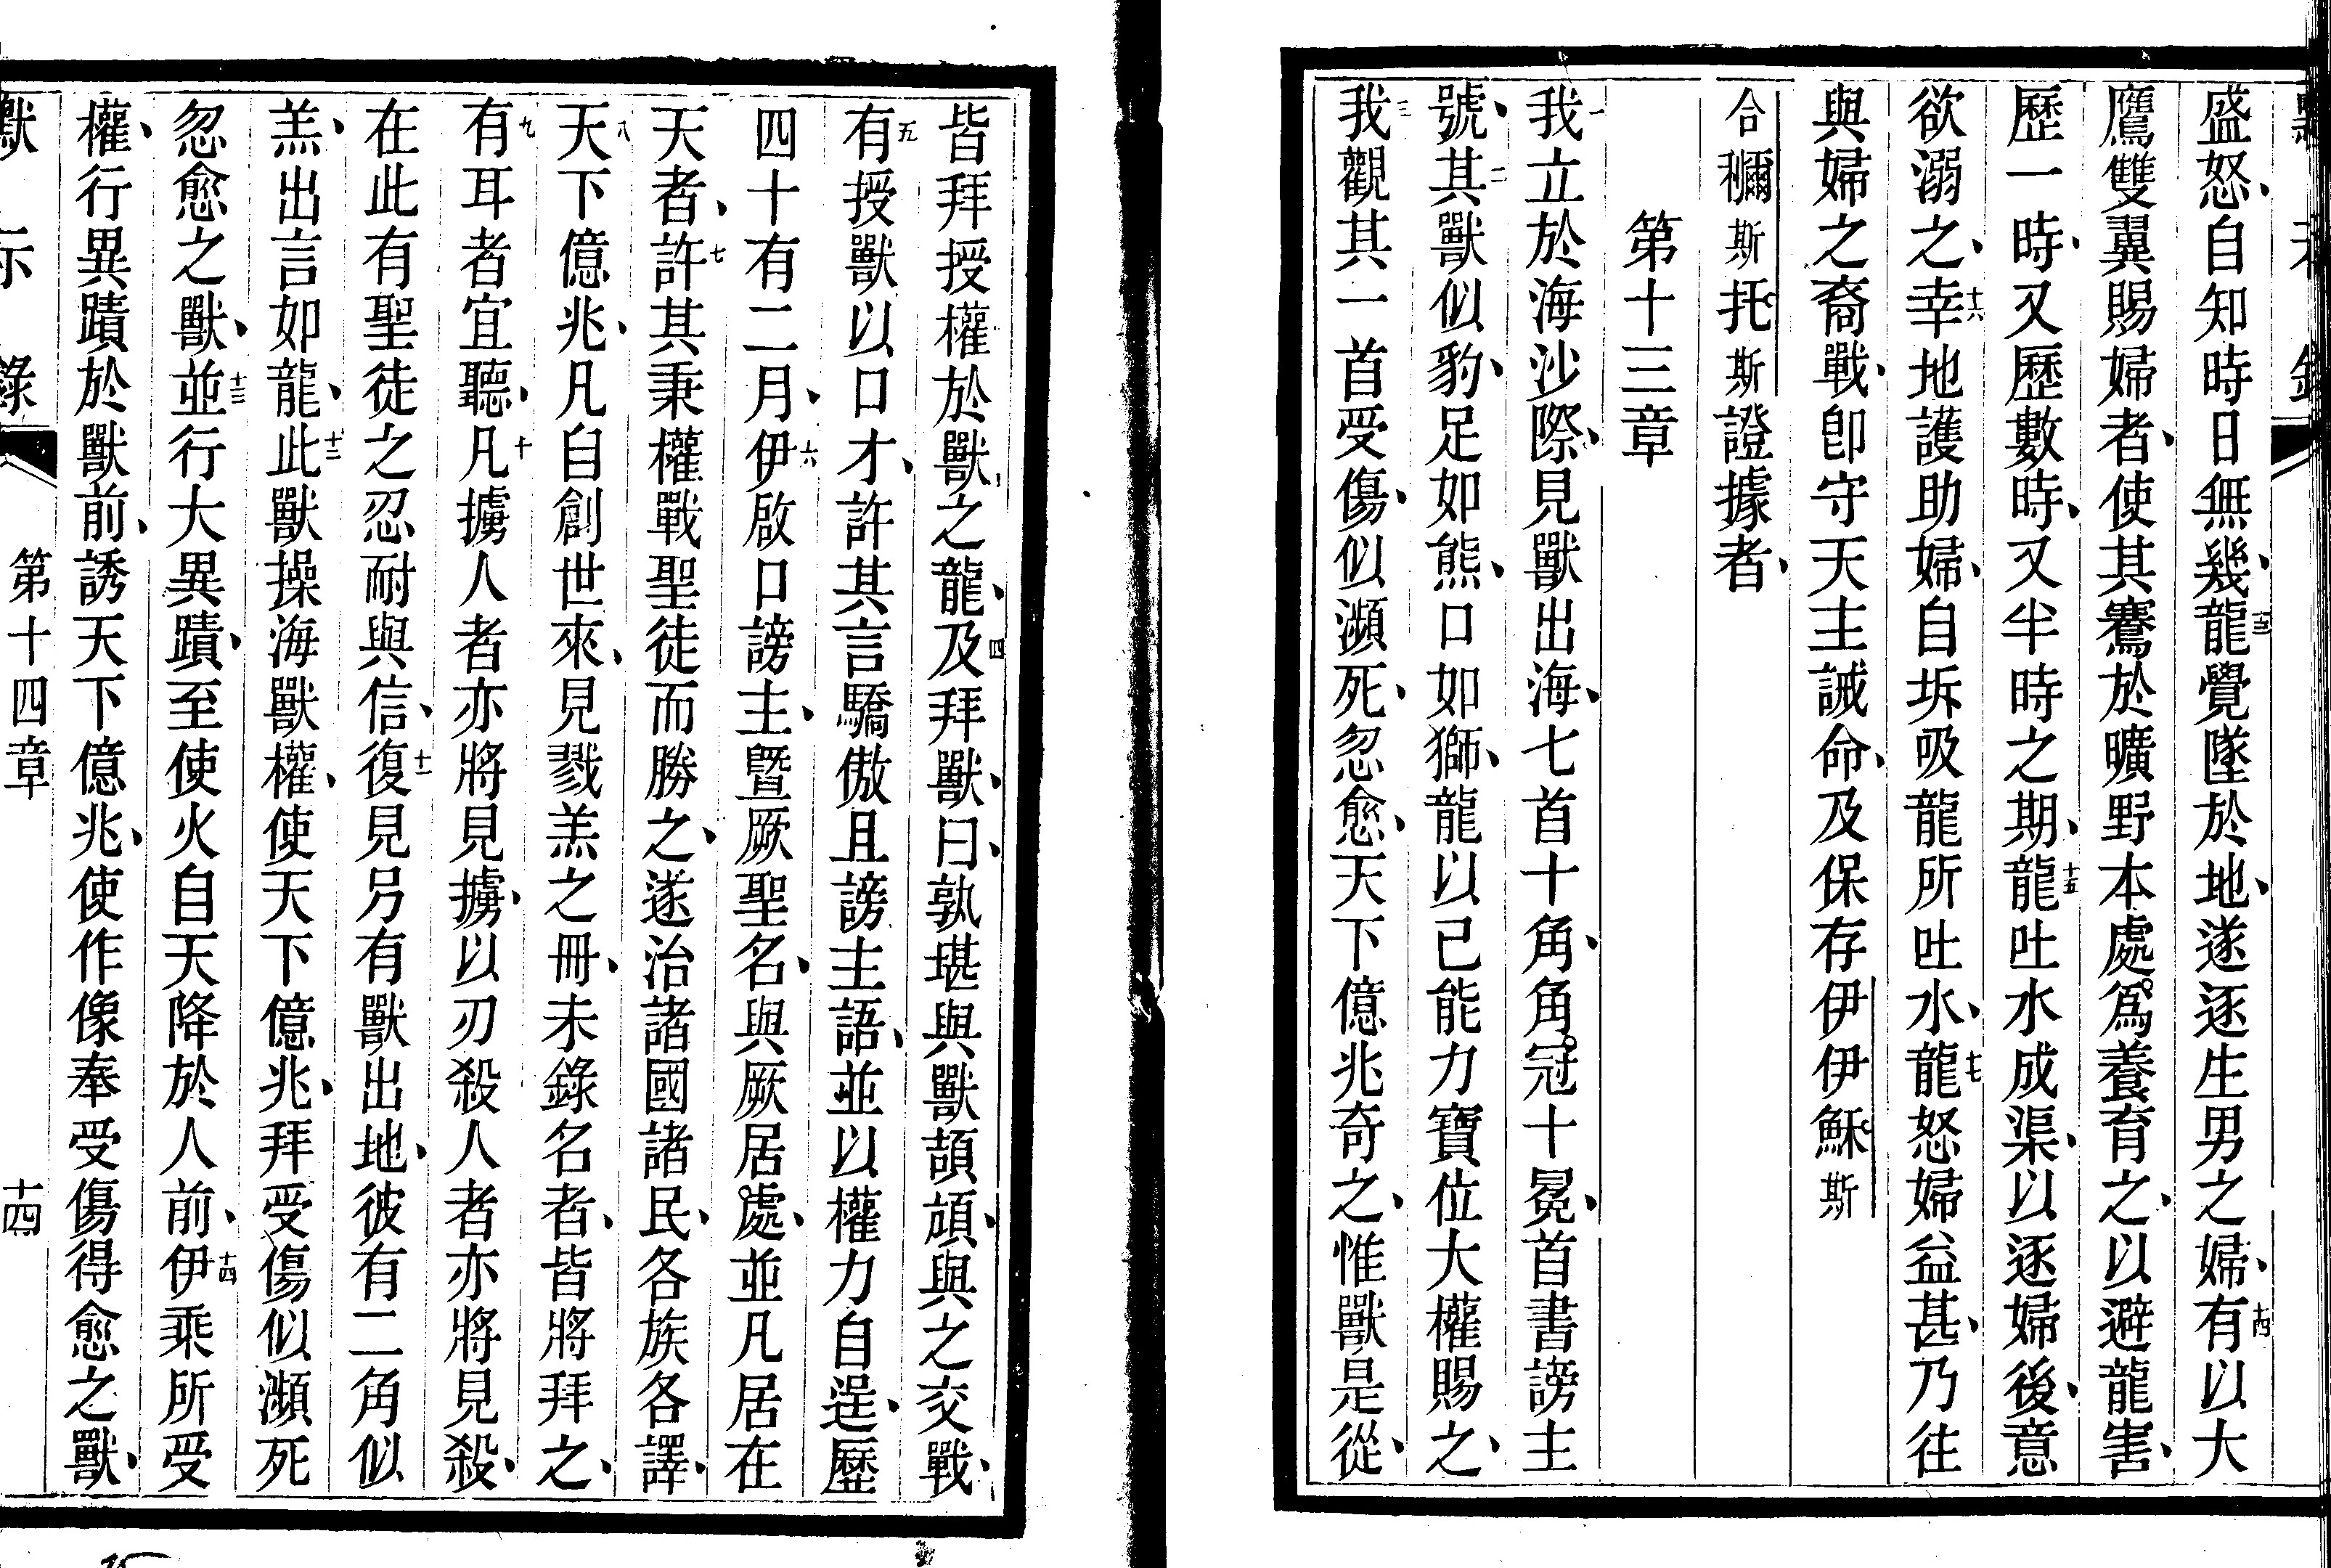 盛怒、自知時日無幾、十三龍覺墜於地、遂逐生男之婦、十四有以大
鷹雙翼賜婦者、使其騫於曠野本處。爲養育之、以避龍害、
歷一時、又歷數時、又半時之期、十五龍吐水成渠、以逐婦後、意
欲溺之、十六幸地護助婦、自坼吸龍所吐水、十七龍怒婦益甚、乃往
與婦之裔戰、卽守天主誡命、及保存伊伊穌斯
合穪斯托斯證據者、
第十三章
一我立於海沙際、見獸出海、七首十角、角冠十冕、首書謗主
號、二其獸似豹、足如熊、口如獅、龍以己能力寶位大權賜之、
三我觀其一首受傷、似瀕死、忽愈、天下億兆奇之、惟獸是從、
皆拜授權於獸之龍、四及拜獸、曰、孰堪與獸頡頏、與之交戰、
五有授獸以口才、許其言驕傲且謗主語、並以權力自逞、歷
四十有二月、六伊啟口謗主、曁厥聖名、與厥居處、並凡居在
天者、七許其秉權戰聖徒而勝之、遂治諸國諸民、各族各譯、
八天下億兆、凡自創世來、見戮羔之冊、未錄名者、皆將拜之、
九有耳者宜聽、十凡擄人者亦將見擄、以刃殺人者亦將見殺、
在此有聖徒之忍耐與信、十一復見另有獸出地、彼有二角似
羔、出言如龍、十二此獸操海獸權、使天下億兆、拜受傷似瀕死
忽愈之獸、十三並行大異蹟、至使火自天降於人前、十四伊乘所受
權、行異蹟於獸前、誘天下億兆、使作像奉受傷得愈之獸、
默示錄 第十四章 十四